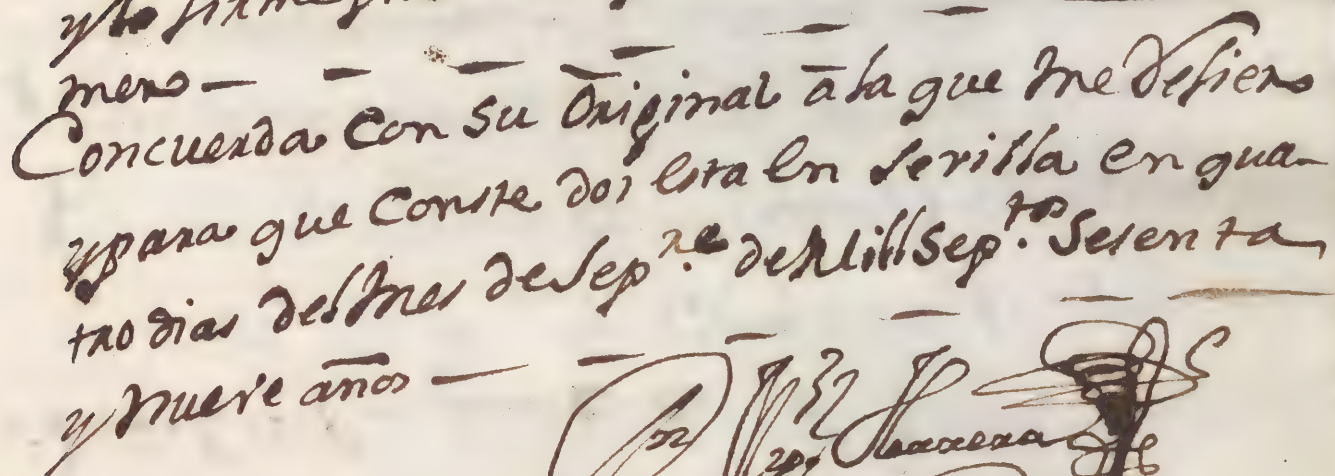 y lo firme
mero —
Concuerda Con su Original â la que me Refiero
y para que Conste doi esta En Sevilla En qua-
tro dias del Mes de Sep.re de Mill Sep.tos Sesenta
y Nueve años —
Herrera